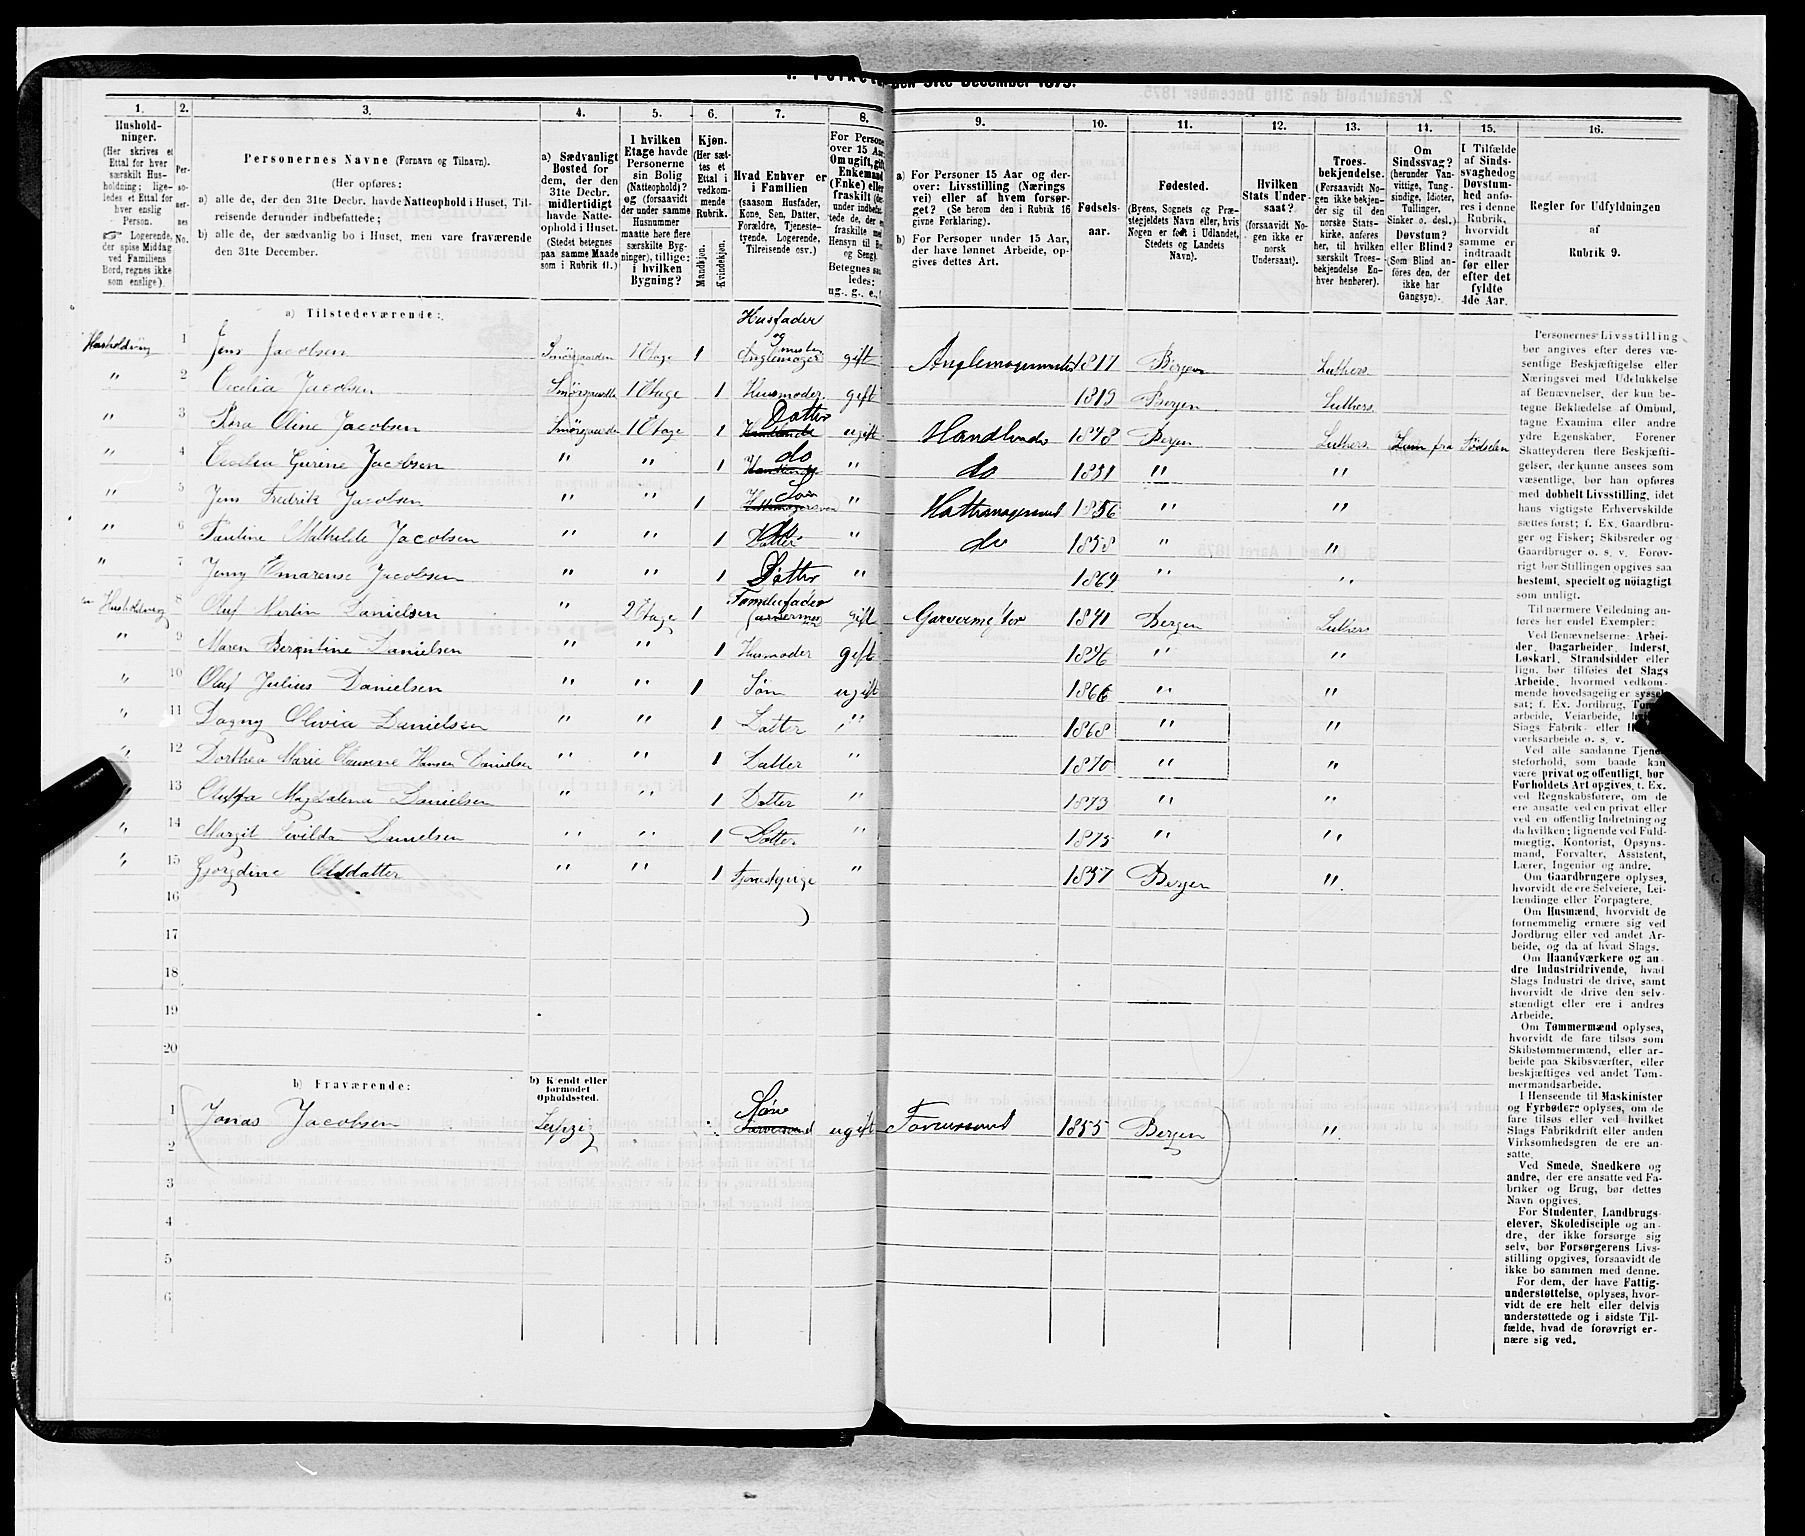 1. Folket den 31te December 1875.
1. 2. 3. 4. 5. 6. 7. 8. 9. 10. 11. 12. 13. 14. 15. 16.
Hushold-
ninger.
(Her skrives et
Ettal for hver
særskilt Hus-
holdning; lige-
ledes et Ettal for
hver enslig
Person.
Logerende,
der spise Middag
ved Familiens
Bord, regnes ikke
som enslige).
Per-
so-
ner-
nes
No.
Personernes Navne (Fornavn og Tilnavn).
(Her opføres:
a) alle de, der den 31te Decbr. havde Natteophold i Huset, Til-
reisende derunder indbefattede;
b) alle de, der sædvanlig bo i Huset, men vare fraværende
den 31te December.
a) Sædvanligt
Bosted for
dem, der den
31te Decbr.
midlertidigt
havde Natte-
ophold i Huset.
(Stedet betegnes
paa samme Maade
som i Rubrik 11.)
I hvilken
Etage havde
Personerne
sin Bolig
(Natteophold)?
og (forsaavidt
der under samme
Husnummer
maatte høre flere
særskilte Byg-
ninger), tillige:
i hvilken
Bygning?
Kjøn.
(Her sæt-
tes et
Ettal i
vedkom-
mende
Rubrik.
Mandkjøn.
Kvindekjøn.
Hvad Enhver er
i Familien
(saasom Husfader,
Kone, Søn, Datter,
Forældre, Tjeneste-
tyende, Logerende,
Tilreisende osv.)
For Persone
over 15 Aar
Om ugift, gift
Enkemand
(Enke) eller
fraskilt
Betegnes saa
ledes:
ug., g., e., f
a) For Personer 15 Aar og der-
over: Livsstilling (Nærings
vei) eller af hvem forsør-
get? (Se herom den i Rubrik 16
givne Forklaring).
b) For Personer under 15 Aar,
der have lønnet Arbeide, op-
gives dettes Art.
Fødsels-
aar.
Fødested.
(Byens, Sognets og Præ-
stegjeldets Navn eller, hvis
Nogen er født i Udlandet,
Stedets og Landets
Navn).
Hvilken
Stats Under-
saat?
(forsaavidt No-
gen ikke er
norsk
Undersaat).
Troes-
bekjendelse.
(Forsaavidt No-
gen ikke bekjen-
der sig til den
norske Stats-
kirke, anføres
her, til hvilken
særskilt Troes-
bekjendelse En-
hver henhører).
Om
Sindssvag?
(herunder Van-
vittige, Tung-
sindige, Idioter,
Tullinger,
Sinker o. desl.)
Døvstum?
eller Blind?
(Som Blind an-
føres den, der
ikke har
Gangsyn).
I Tilfælde
af Sinds-
svaghed og
Døvstum-
hed anfø-
res i denne
Rubrik,
hvorvidt
samme er
indtraadt
før eller
efter det
fyldte
4de Aar.
Regler for Udfyldningen
af
Rubrik 9.
a) Tilstedeværende:
Husholdning 1 Jens Jacobsen Smörgaarden 1 Etage 1 Husfader og Anglemager mester gift Anglemagermester 1817 Bergen Luthers
" 2 Cecilia Jacobsen 1 Etage 1 Husmoder gift 1819 Bergen Luthers
" 3 Oline Jacobsen Smörgaarden 1 Etage 1 Datter ugift 1848 Bergen Luthers fra Födselen
" 4 Cecilia Jacobsen " " 1 do " do 1851 " "
" 5 Jens Fredrik Jacobsen " " 1 Søn " 1856 " "
" 6 Pauline Mathilde Jacobsen " " 1 Datter " do 1858 " "
" 7 Jenny Jacobsen " " 1 Datter " 1864 " "
Husholdning 8 Oluf Martin Danielsen " 2 Etage 1 Familiefader gift 1841 Bergen Luthers
" 9 Maren Berentine Danielsen " " 1 Husmoder gift 1846 " "
" 10 Oluf Julius Danielsen " " 1 Søn ugift 1866 " "
" 11 Dagny Olivia Danielsen " " 1 Datter " 1868 " "
" 12 Dorthea Marie Hansen Danielsen " " 1 Datter " 1870 " "
" 13 Oluffa Magdalena Danielsen " " 1 Datter " 1873 " "
" 14 Margit Danielsen " " 1 Datter " 1875 " "
" 15 Olsdatter " " 1 Tjenestepige " 1857 Bergen "
16
17
18
19
20
b) Fraværende:
b) Kjendt eller
formodet
Opholdssted.
1 Jonas Jacobsen Leipzig Søn ugift 1855 Bergen "
2
3
4
5
6
Personernes Livsstilling
bør angives efter deres væ-
sentlige Beskjæftigelse eller
Næringsvei med Udelukkelse
af Benævnelser, der kun be-
tegne Beklædelse af Ombud,
tagne Examina eller andre
ydre Egenskaber. Forener
Skatteyderen flere Beskjæfti-
gelser, der kunne ansees som
væsentlige, bør han opføres
med dobbelt Livsstilling, idet
hans vigtigste Erhvervskilde
sættes først; f. Ex. Gaardbru-
ger og Fisker; Skibsreder og
Gaardbruger o. s. v. Forøv-
rigt bør Stillingen opgives saa
bestemt, specielt og nøiagtigt
som muligt.
Til nærmere Veiledning an-
føres her endel Exempler:
Ved Benævnelserne: Arbei-
der, Dagarbeider, Inderst,
Løskarl, Strandsidder eller
lign. bør tilføies det Slags
Arbeide, hvormed vedkom-
mende hovedsagelig er syssel-
sat; f. Ex. Jordbrug, Tom
arbeide, Veiarbeide,
Slags Fabrik- eller
værksarbeide o. s. v.
Ved alle saadanne Tjene
steforhold, som baade kan
være privat og offentligt, bør
Forholdets Art opgives, f. Ex.
ved Regnskabsførere, om de
ere ansatte ved en privat eller
ved en offentlig Indretning og
da hvilken; lignende ved Fuld-
mægtig, Kontorist, Opsyns-
mand, Forvalter, Assistent,
Lærer, Ingeniør og andre.
Om Gaardbrugere oplyses,
hvorvidt de ere Selveiere, Lei-
lændinge eller Forpagtere.
Om Husmænd, hvorvidt de
fornemmelig ernære sig ved
Jordbrug eller ved andet Ar-
beide, og da af hvad Slags.
Om Haandværkere og an-
dre Industridrivende, hvad
Slags Industri de drive, samt
hvorvidt de drive den selv-
stændigt eller ere i andres
Arbeide.
Om Tømmermænd oplyses,
hvorvidt de fare tilsøs som
Skibstømmermænd, eller ar-
beide paa Skibsværfter, eller
beskjæftiges ved andet Tøm-
mermandsarbeide.
I Henseende til Maskinister
og Fyrbødere oplyses, om de
fare tilsøs eller ved hvilket
Slags Fabrikdrift eller anden
Virksomhedsgren de ere an-
satte.
Ved Smede, Snedkere og
andre, der ere ansatte ved Fa-
briker og Brug, bør dettes
Navn opgives.
For Studenter, Landbrugs-
elever, Skoledisciple og an-
dre, der ikke forsørge sig
selv, bør Forsørgerens Livs-
stilling opgives, forsaavidt de
ikke bo sammen med denne.
For dem, der have Fattig-
understøttelse, oplyses, hvor-
vidt de ere helt eller delvis
understøttede og i sidste Til-
fælde, hvad de forøvrigt er-
nære sig ved.